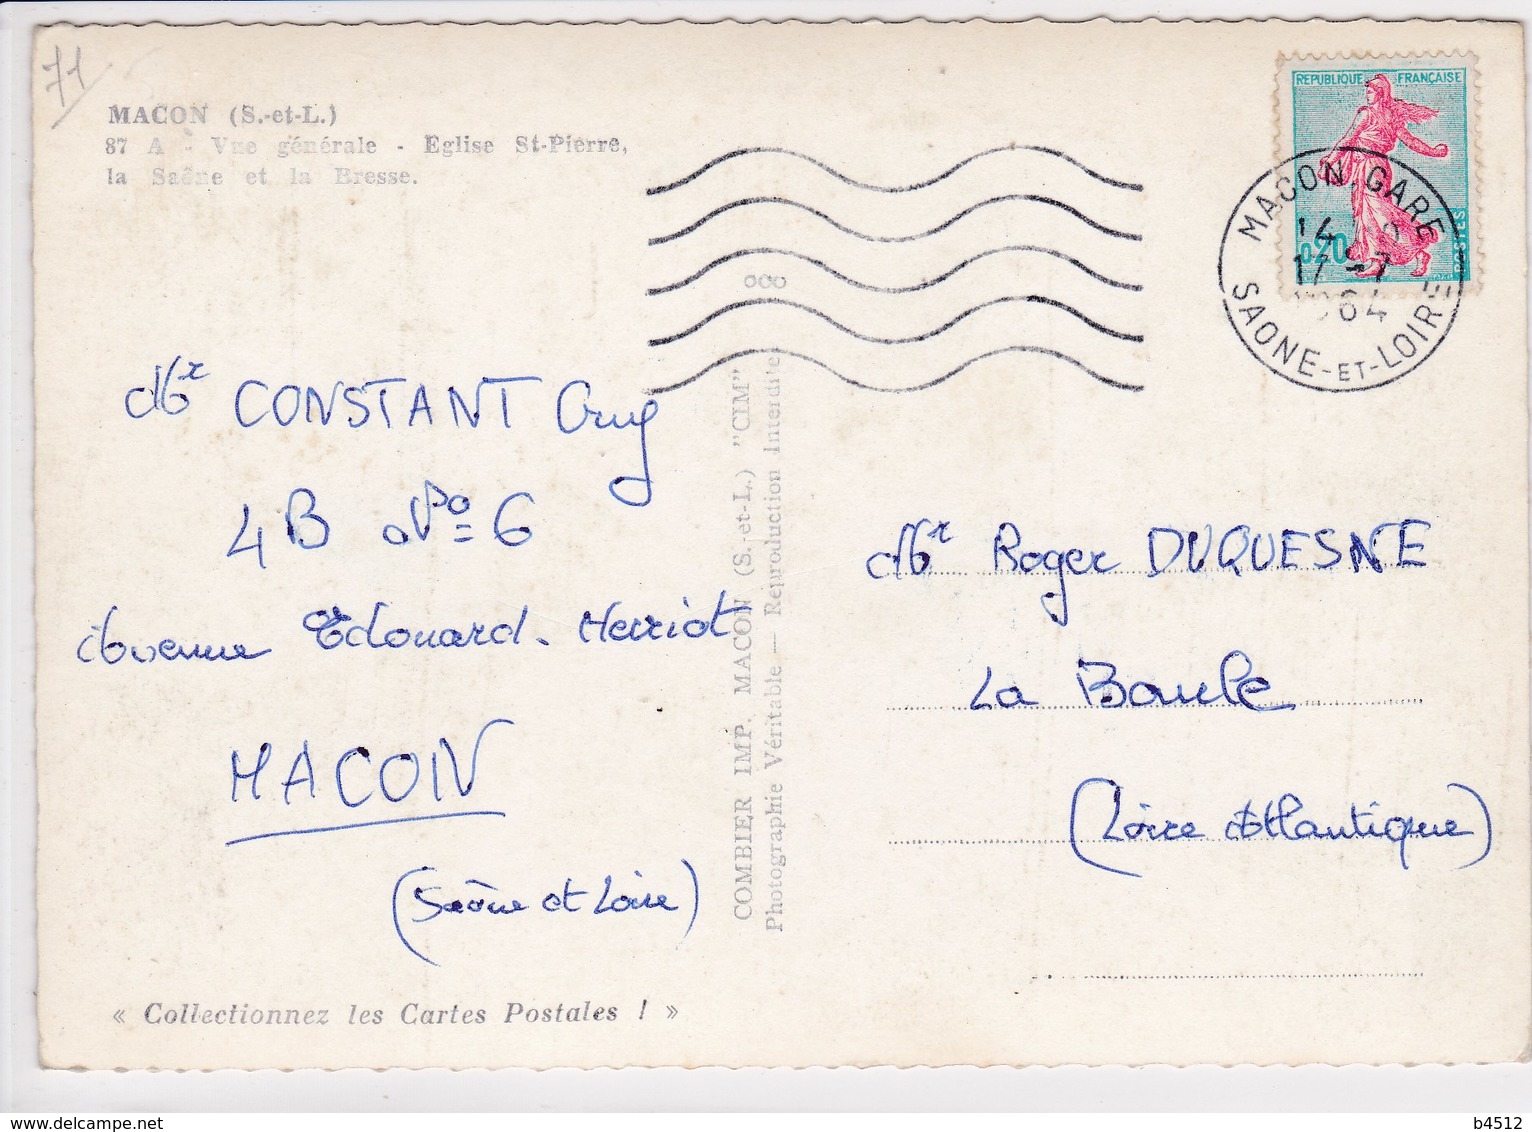 71
MACON (S.-et-L.)
87 A - Vue générale - Eglise St-Pierre,
la Saône et la Bresse.
REPUBLIQUE FRANÇAISE
0,20
POSTES
MACON GARE
14
17 -7
1964
SAONE-ET-LOIRE
Mr CONSTANT Guy
4B No 6
Avenue Edouard-Herriot
MACON
(Saône et Loire)
« Collectionnez les Cartes Postales ! »
COMBIER IMP. MACON (S.-et-L.) "CIM"
Photographie Véritable — Reproduction Interdite
Mr Roger DUQUESNE
La Baule
(Loire Atlantique)
delcampe.net
b4512